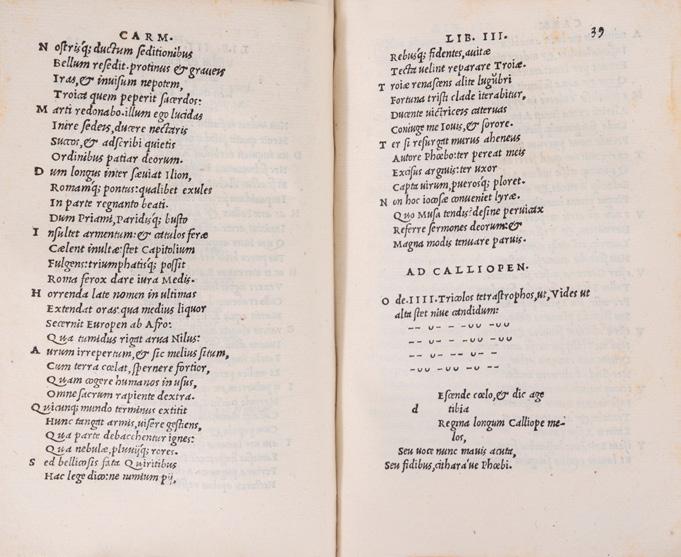 CARM.
N ostrisq; ductum seditionibus
Bellum resedit. protinus & graues
Iras, & inuisum nepotem,
Troica quem peperit sacerdos:
M arti redonabo. illum ego lucidas
Inire sedes, ducere nectaris
Succos, & adscribi quietis
Ordinibus patiar deorum.
D um longus inter sæuiat Ilion,
Romamq; pontus: qualibet exules
In parte regnanto beati.
Dum Priami, Paridisq; busto
I nsultet armentum: & catulos feræ
Cælent inultæ: stet Capitolium
Fulgens: triumphatisq; possit
Roma ferox dare iura Medis.
H orrenda late nomen in ultimas
Extendat oras: qua medius liquor
Secernit Europen ab Afro:
Qua tumidus rigat arua Nilus:
A urum irrepertum, & sic melius situm,
Cum terra cœlat, spernere fortior,
Quam cogere humanos in usus,
Omne sacrum rapiente dextra.
Quicunq; mundo terminus extitit
Hunc tangat armis, uisere gestiens,
Qua parte debacchentur ignes:
Qua nebulæ, pluuijq; rores.
S ed bellicosis fata Quiritibus
Hac lege dico: ne nimium pij,
LIB. III. 39
Rebusq; fidentes, auitæ
Tecta uelint reparare Troiæ.
T roiæ renascens alite lugubri
Fortuna tristi clade iterabitur,
Ducente uictrices cateruas
Coniuge me Iouis, & sorore.
T er si resurgat murus aheneus
Autore Phœbo: ter pereat meis
Excisus argiuis: ter uxor
Capta uirum, puerosq; ploret.
N on hoc iocosæ conueniet lyræ.
Quo Musa tendis? desine peruicax
Referre sermones deorum: &
Magna modis tenuare paruis.
AD CALLIOPEN.
O de. IIII. Tricolos tetrastrophos, ut, Vides ut
alta stet niue candidum:
Escende cœlo, & dic age
d tibia
Regina longum Calliope me-
los,
Seu uoce nunc mauis acuta,
Seu fidibus, cithara'ue Phœbi.